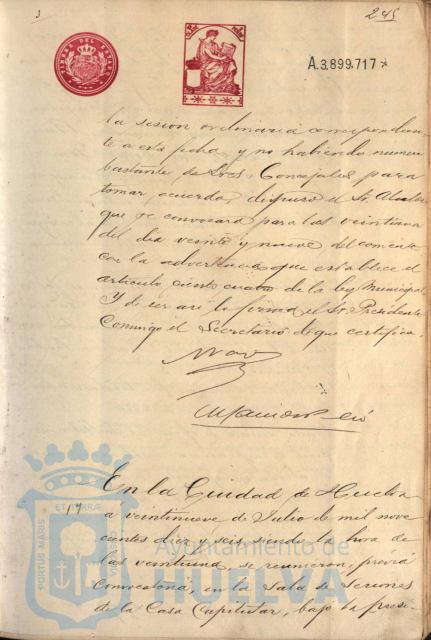 3
245
TIMBRE DEL ESTADO
A.3.899.717
la sesion ordinaria correspondien-
te a esta fecha y no habiendo numero
bastante de Sres. Concejales para
tomar acuerdo, dispuso el Sr. Alcalde
que se convocara para las veintiuna
del dia veinte y nueve del corriente
con la advertencia que establece el
articulo ciento cuatro de la ley Municipal
Y de ser asi lo firma el Sr. Presidente
Conmigo el Secretario de que certifico.
En la Ciudad de Huelva
a veintinueve de Julio de mil nove
cientos diez y seis siendo la hora de
las veintiuna, se reunieron, previa
convocatoria, en la Sala de Sesiones
de la Casa Capitular, bajo la presi-
PORTUS MARIS
ET TERRAE
Ayuntamiento de
HUELVA